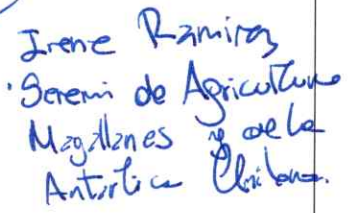 Irene Ramirez
Seremi de Agricultura
Magallanes y de la
Antartica Chilena.